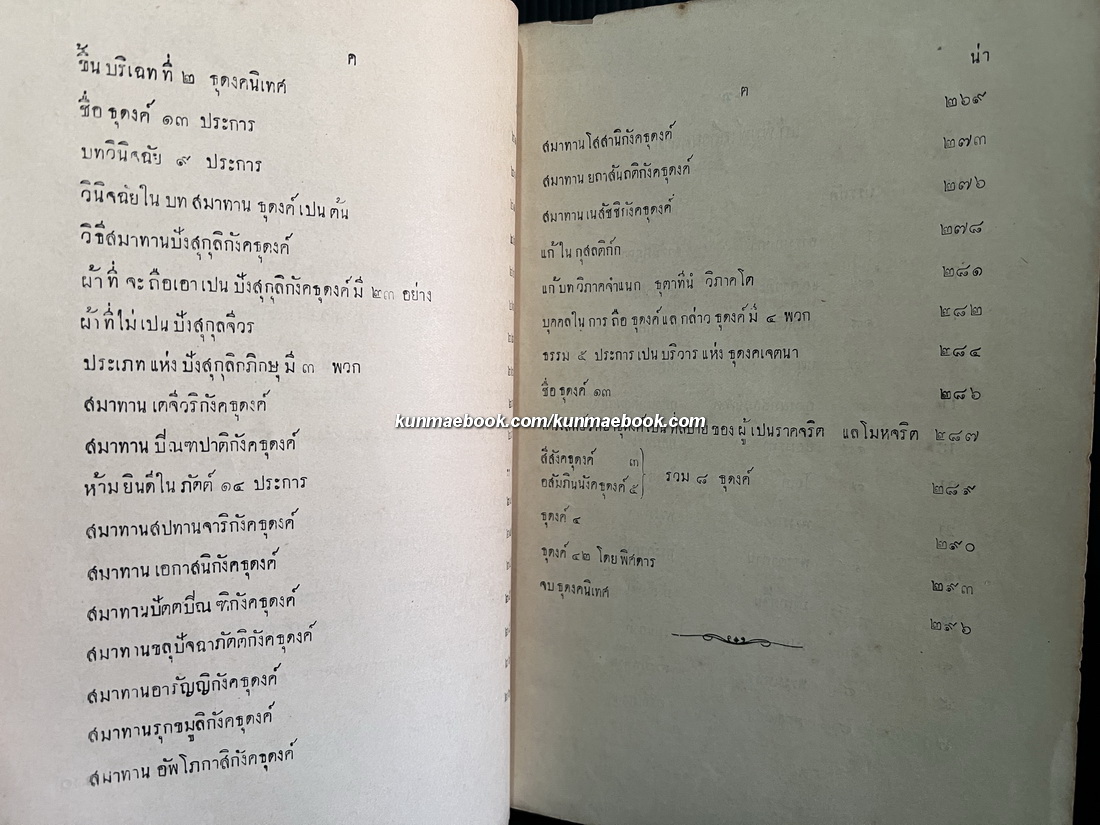 ค
ขึ้น บริเฉท ที่ ๒ ธุดงคนิเทศ
ชื่อ ธุดงค์ ๑๓ ประการ
บทวินิจฉัย ๙ ประการ
วินิจฉัยใน บท สมาทาน ธุดงค์ เปน ต้น
วิธีสมาทานปังสุกุลิกังคธุดงค์
ผ้า ที่ จะ ถือเอา เปน ปังสุกุลิกังคธุดงค์ มี ๒๓ อย่าง
ผ้าที่ไม่ เปน ปังสุกุลจีวร
ประเภท แห่ง ปังสุกุลิกภิกษุ มี ๓ พวก
สมาทาน เตจีวริกังคธุดงค์
สมาทาน บิณฑปาติกังคธุดงค์
ห้าม ยินดีใน ภัตต์ ๑๔ ประการ
สมาทานสปทานจาริกังคธุดงค์
สมาทาน เอกาสนิกังคธุดงค์
สมาทานปัตตบิณฑิกังคธุดงค์
สมาทานขลุปัจฉาภัตติกังคธุดงค์
สมาทานอารัญญิกังคธุดงค์
สมาทานรุกขมูลิกังคธุดงค์
สมาทาน อัพโภกาสิกังคธุดงค์
ฅ น่า
สมาทานโสสานิกังคธุดงค์ ๒๖๙
สมาทาน ยถาสันถติกังคธุดงค์ ๒๗๓
สมาทานเนสัชชิกังคธุดงค์ ๒๗๖
แก้ ใน กุสลติก์ก ๒๗๘
แก้ บท วิภาคจำแนก ธุตาทีนํ วิภาคโต ๒๘๑
บุคคลใน การ ถือ ธุดงค์ แล กล่าว ธุดงค์ มี ๔ พวก ๒๘๒
ธรรม ๕ ประการ เปน บริวาร แห่ง ธุดงคเจตนา ๒๘๔
ชื่อ ธุดงค์ ๑๓ ๒๘๖
เปน ที่สบาย ของ ผู้ เปนราคจริต แล โมหจริต ๒๘๗
สีสังคธุดงค์ ๓
อสัมภินนังคธุดงค์ ๕ รวม ๘ ธุดงค์ ๒๘๙
ธุดงค์ ๔ ๒๙๐
ธุดงค์ ๔๒ โดย พิศดาร ๒๙๓
จบ ธุดงคนิเทศ ๒๙๖
kunmaebook.com/kunmaebook.com